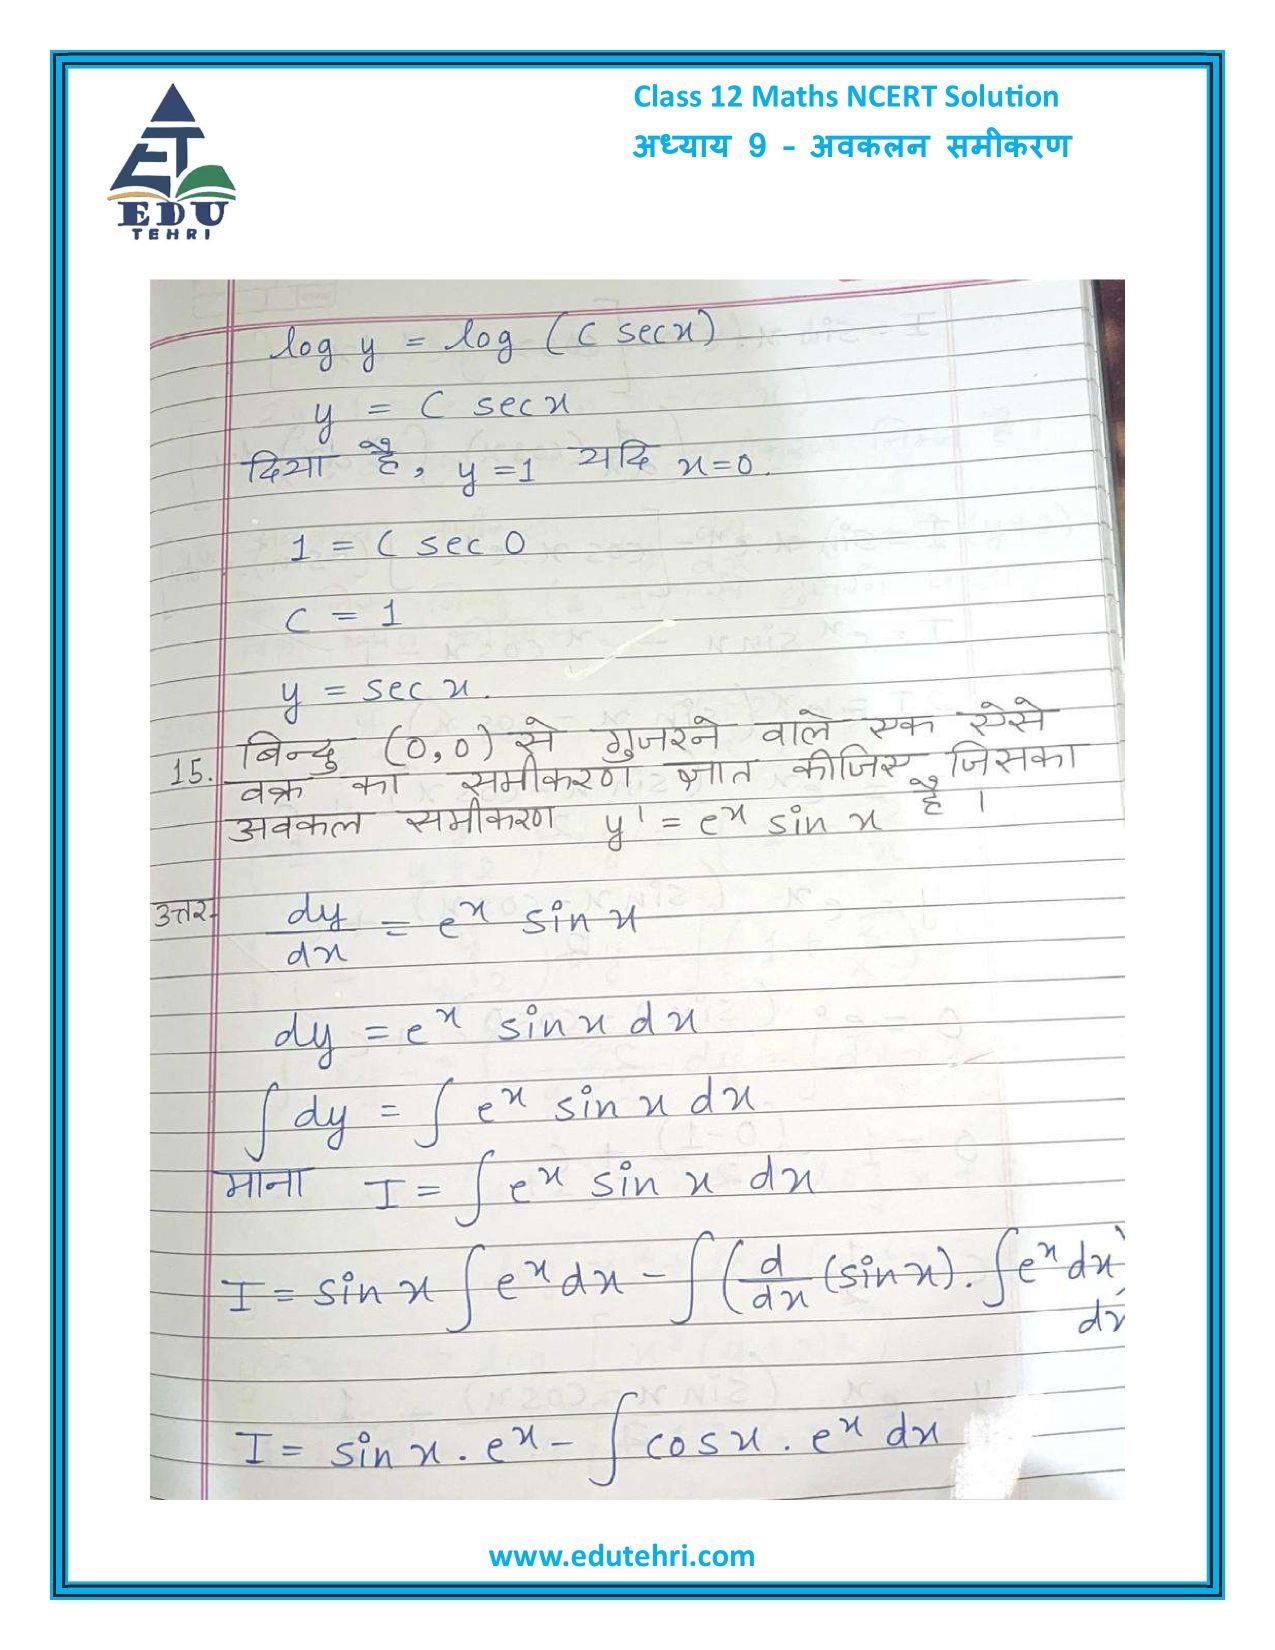 Class 12 Maths NCERT Solution
अध्याय 9 – अवकलन समीकरण
EDU
TEHRI
log y = log (C sec x)
y = C sec x
दिया है, y = 1 यदि x = 0.
1 = C sec 0
C = 1
y = sec x.
15. बिन्दु (0,0) से गुजरने वाले एक ऐसे
वक्र का समीकरण ज्ञात कीजिए जिसका
अवकल समीकरण y' = e^x sin x है ।
उत्तर- dy/dx = e^x sin x
dy = e^x sin x dx
∫ dy = ∫ e^x sin x dx
माना I = ∫ e^x sin x dx
I = sin x ∫ e^x dx - ∫ (d/dx (sin x). ∫ e^x dx)
dx
I = sin x . e^x - ∫ cos x . e^x dx
www.edutehri.com